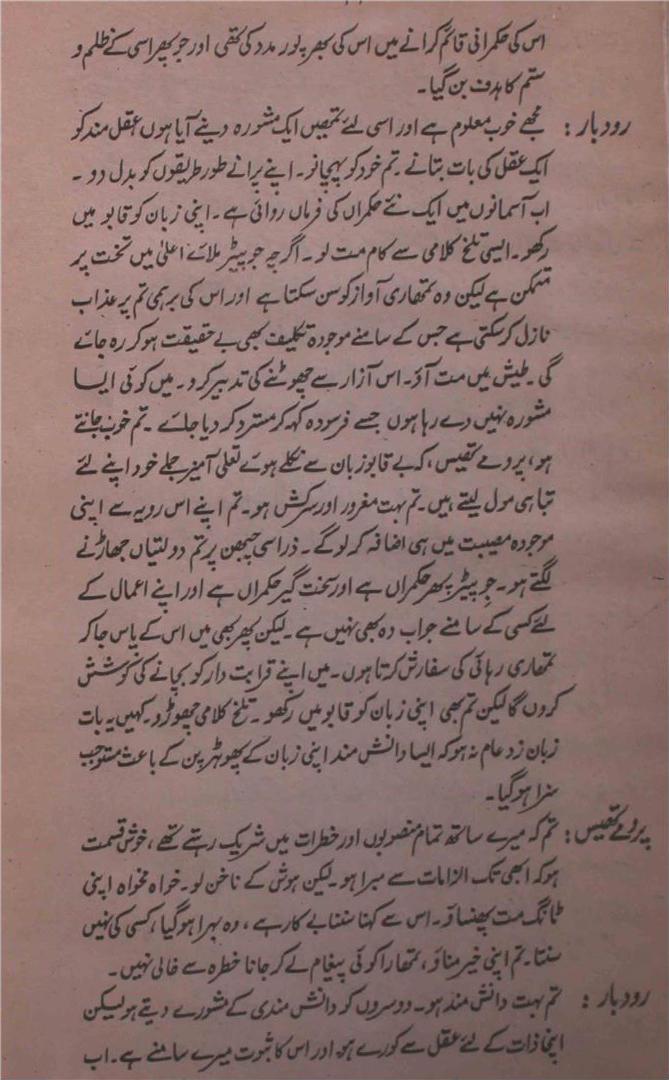 اس کی حکمرانی قائم کرانے میں اس کی بھرپور مدد کی تھی اور جو پھر اسی کے ظلم و
ستم کا ہدف بن گیا۔
رودبار: مجھے خوب معلوم ہے اور اسی لئے تمھیں ایک مشورہ دینے آیا ہوں عقل مند کو
ایک عقل کی بات بتانے۔ تم خود کو پہچانو۔ اپنے پرانے طور طریقوں کو بدل دو۔
اب آسمانوں میں ایک نئے حکمراں کی فرماں روائی ہے۔ اپنی زبان کو قابو میں
رکھو۔ ایسی تلخ کلامی سے کام مت لو۔ اگرچہ جوپیٹر ملائے اعلیٰ میں تخت پر
متمکن ہے لیکن وہ تمھاری آواز کو سن سکتا ہے اور اس کی برہمی تم پر عذاب
نازل کر سکتی ہے جس کے سامنے موجودہ تکلیف بھی بے حقیقت ہو کر رہ جائے
گی۔ طیش میں مت آؤ۔ اس آزار سے چھوٹنے کی تدبیر کرو۔ میں کوئی ایسا
مشورہ نہیں دے رہا ہوں جسے فرسودہ کہہ کر مسترد کر دیا جائے۔ تم خوب جانتے
ہو، پرومے تھیس، کہ بے قابو زبان سے نکلے ہوئے تعلی آمیز جملے خود اپنے لئے
تباہی مول لیتے ہیں۔ تم بہت مغرور اور سرکش ہو۔ تم اپنے اس رویہ سے اپنی
موجودہ مصیبت میں ہی اضافہ کر لو گے۔ ذرا سی چبھن پر تم دولتیاں جھاڑنے
لگتے ہو۔ جوپیٹر پھر حکمراں ہے اور سخت گیر حکمراں ہے اور اپنے اعمال کے
لئے کسی کے سامنے جواب دہ بھی نہیں ہے۔ لیکن پھر بھی میں اس کے پاس جا کر
تمھاری رہائی کی سفارش کرتا ہوں۔ میں اپنے قرابت دار کو بچانے کی کوشش
کروں گا لیکن تم بھی اپنی زبان کو قابو میں رکھو۔ تلخ کلامی چھوڑو۔ کہیں یہ بات
زبان زد عام نہ ہو کہ ایسا دانش مند اپنی زبان کے پھوہڑپن کے باعث مستوجب
سزا ہو گیا۔
پرومے تھیس: تم کہ میرے ساتھ تمام منصوبوں اور خطرات میں شریک رہتے تھے، خوش قسمت
ہو کہ ابھی تک الزامات سے مبرا ہو۔ لیکن ہوش کے ناخن لو۔ خواہ مخواہ اپنی
ٹانگ مت پھنساؤ۔ اس سے کہنا سننا بے کار ہے، وہ بہرا ہو گیا، کسی کی نہیں
سنتا۔ تم اپنی خیر مناؤ، تمھارا کوئی پیغام لے کر جانا خطرہ سے خالی نہیں۔
رودبار: تم بہت دانش مند ہو۔ دوسروں کو دانش مندی کے مشورے دیتے ہو لیکن
اپنی ذات کے لئے عقل سے کورے ہو اور اس کا ثبوت میرے سامنے ہے۔ اب